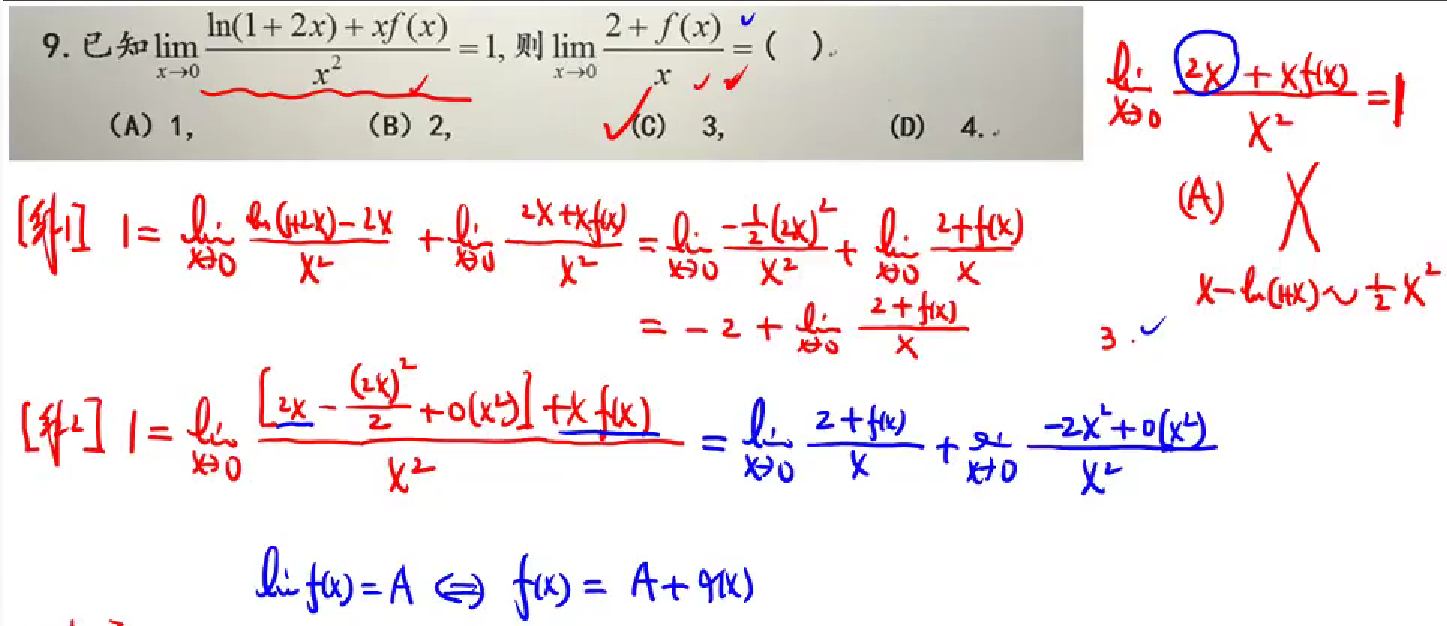 9. 已知 lim_{x→0} \frac{ln(1+2x)+xf(x)}{x^2} = 1, 则 lim_{x→0} \frac{2+f(x)}{x} = ( ).
(A) 1, (B) 2, (C) 3, (D) 4.
lim_{x→0} \frac{2x+xf(x)}{x^2} = 1
(A) X
x-ln(1+x)~\frac{1}{2}x^2
[解1] 1 = lim_{x→0} \frac{ln(1+2x)-2x}{x^2} + lim_{x→0} \frac{2x+xf(x)}{x^2} = lim_{x→0} \frac{-\frac{1}{2}(2x)^2}{x^2} + lim_{x→0} \frac{2+f(x)}{x}
= -2 + lim_{x→0} \frac{2+f(x)}{x}
3.
[解2] 1 = lim_{x→0} \frac{[2x-\frac{(2x)^2}{2}+o(x^2)]+xf(x)}{x^2} = lim_{x→0} \frac{2+f(x)}{x} + lim_{x→0} \frac{-2x^2+o(x^2)}{x^2}
lim f(x) = A ⇔ f(x) = A + α(x)